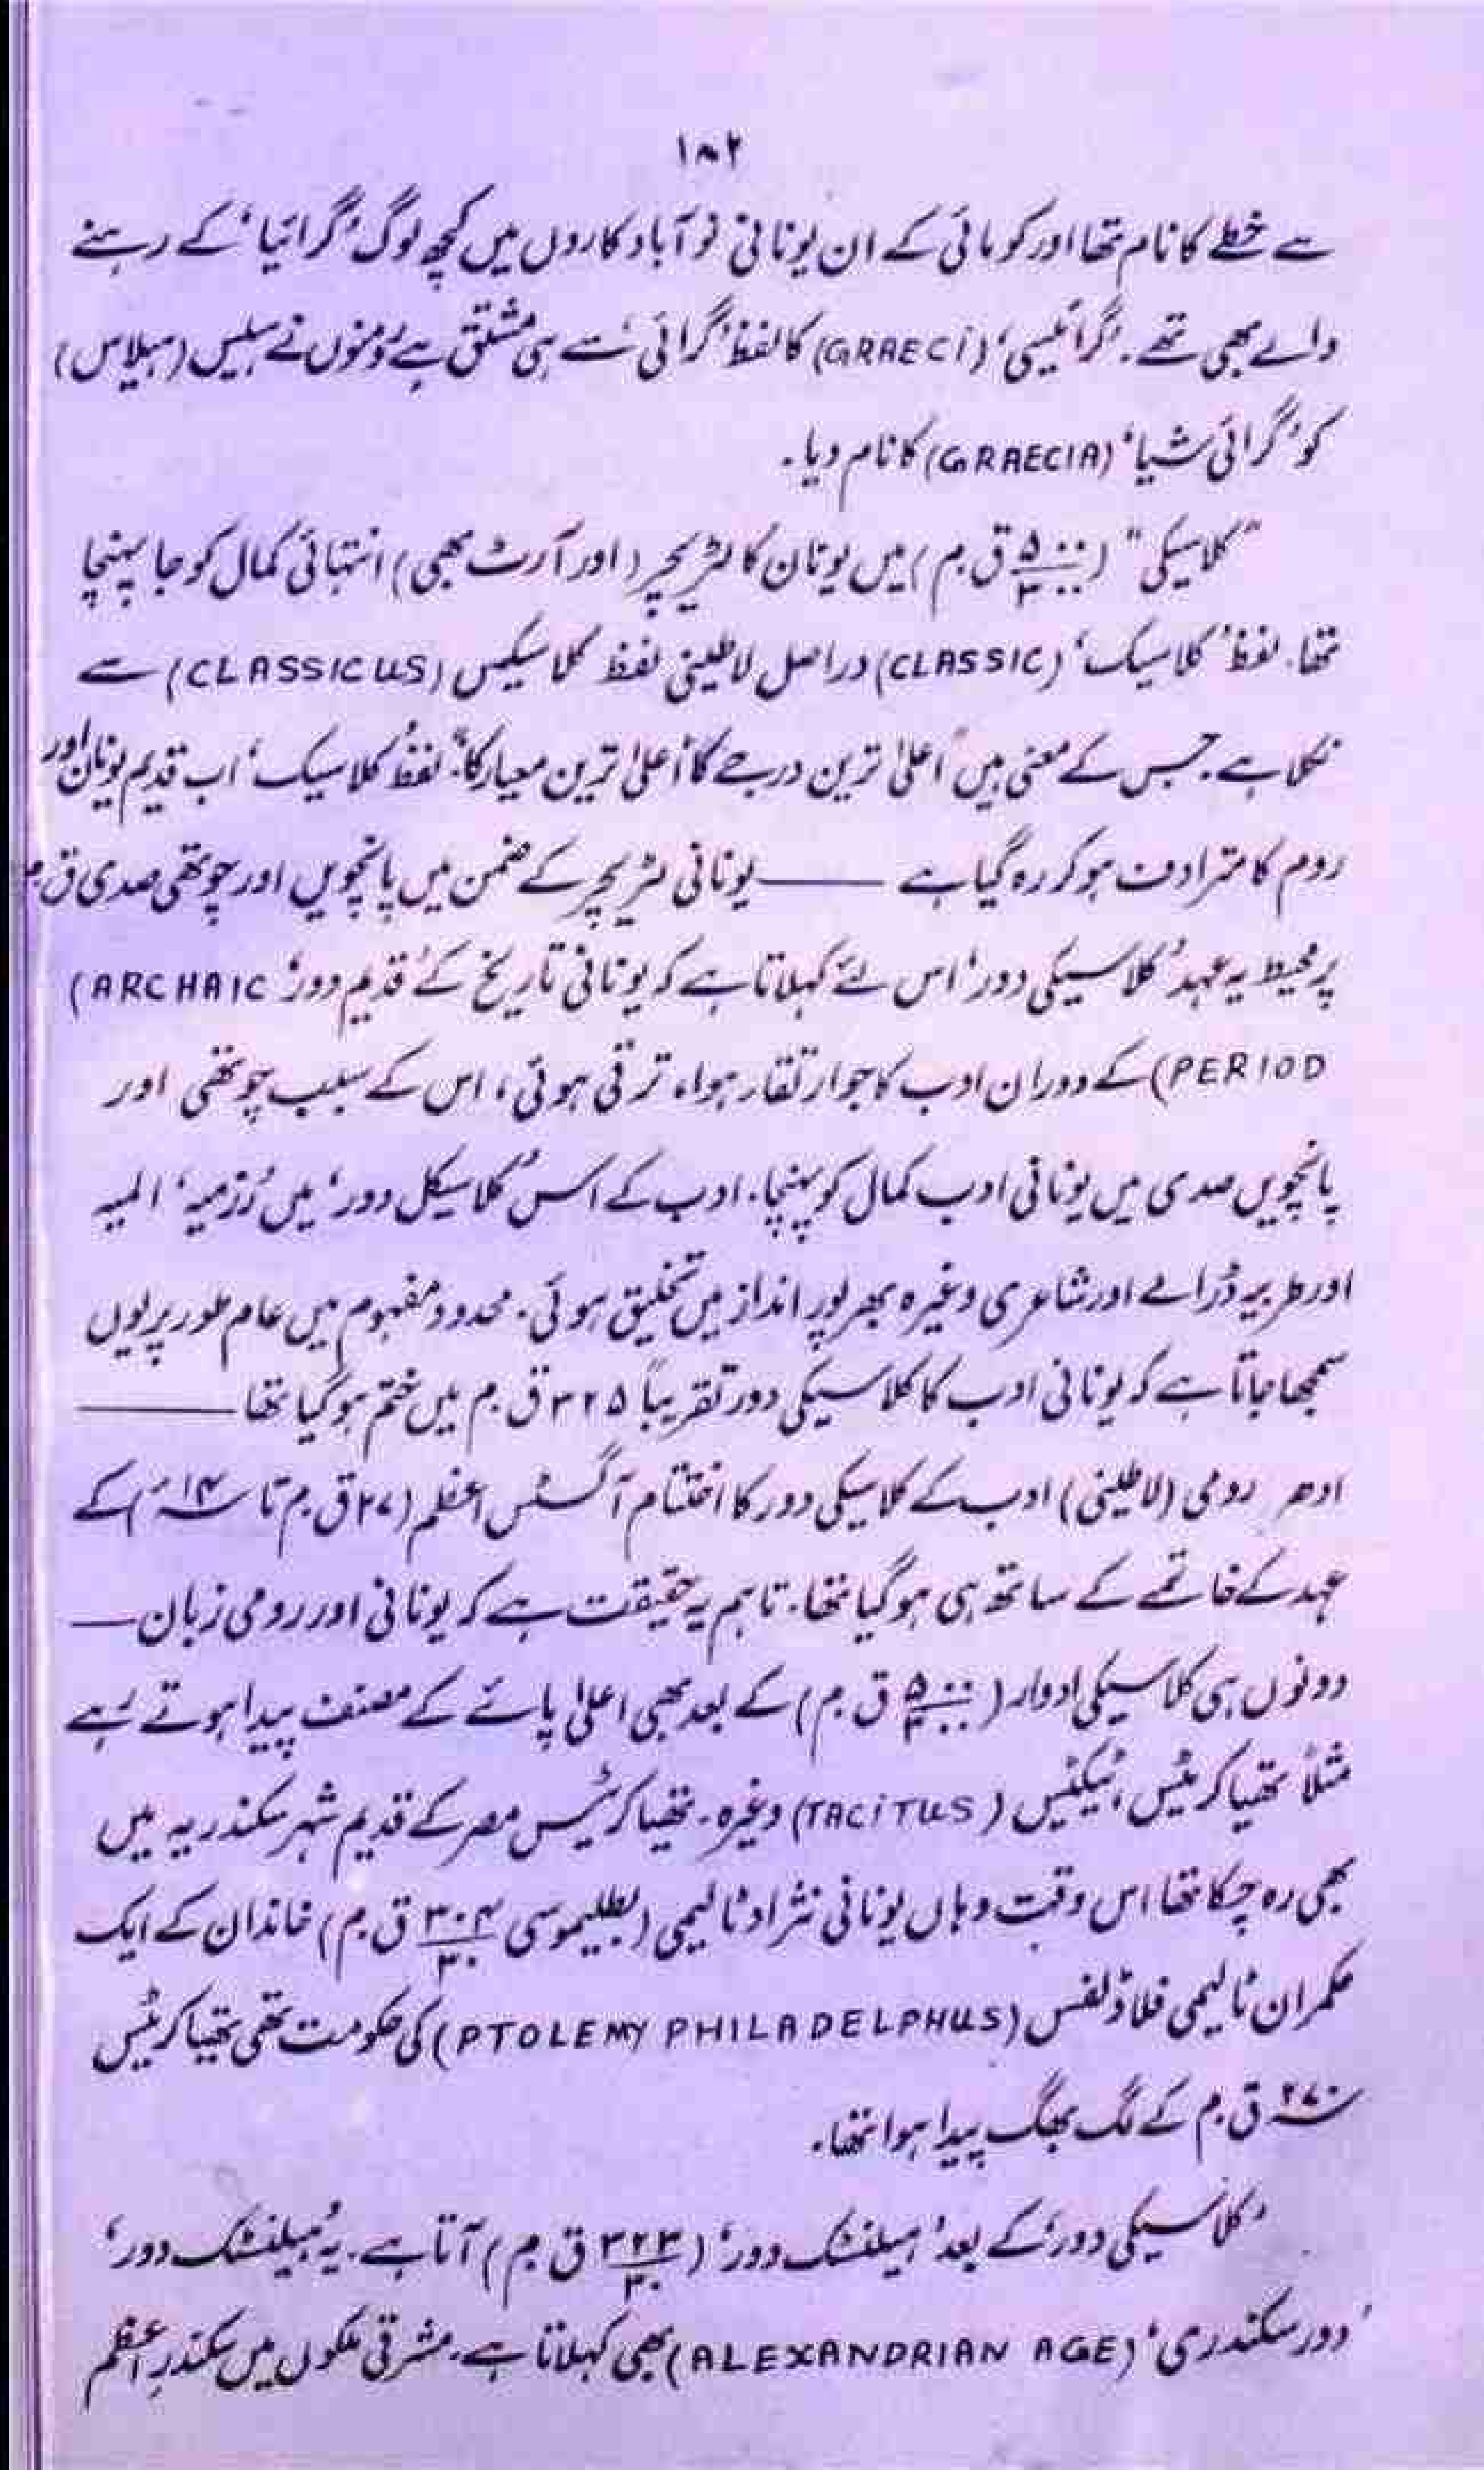 ۱۸۲
سے خطے کا نام تھا اور کومائی کے ان یونانی نو آباد کاروں میں کچھ لوگ 'گرائیا' کے رہنے
والے بھی تھے۔ 'گرائیسی' (GRAECI) کا لفظ 'گرائی' سے ہی مشتق ہے رومنوں نے ہیلیس (ہیلاس)
کو 'گرائی شیا' (GRAECIA) کا نام دیا۔
"کلاسیکی" (۵۰۰/۳۰۰ ق۔م) میں یونان کا لٹریچر (اور آرٹ بھی) انتہائی کمال کو جا پہنچا
تھا۔ لفظ 'کلاسیک' (CLASSIC) دراصل لاطینی لفظ کلاسیکس (CLASSICUS) سے
نکلا ہے۔ جس کے معنی ہیں "اعلیٰ ترین درجے کا" اعلیٰ ترین معیار کا"۔ لفظ 'کلاسیک' اب قدیم یونان اور
روم کا مترادف ہو کر رہ گیا ہے ——— یونانی لٹریچر کے ضمن میں پانچویں اور چوتھی صدی ق۔م
پر محیط یہ عہد 'کلاسیکی دور' اس لئے کہلاتا ہے کہ یونانی تاریخ کے 'قدیم دور' (ARCHAIC
PERIOD) کے دوران ادب کا جو ارتقار ہوا، ترقی ہوئی، اس کے سبب چوتھی اور
پانچویں صدی میں یونانی ادب کمال کو پہنچا۔ ادب کے اس 'کلاسیکل دور' میں 'رزمیہ' المیہ
اور طربیہ ڈرامے اور شاعری وغیرہ بھرپور انداز میں تخلیق ہوئی۔ محدود مفہوم میں عام طور پر یوں
سمجھا جاتا ہے کہ یونانی ادب کا کلاسیکی دور تقریباً ۳۲۵ ق۔م میں ختم ہو گیا تھا ———
ادھر رومی (لاطینی) ادب کے کلاسیکی دور کا اختتام آگسٹس اعظم (۲۷ ق۔م تا ۱۴ء) کے
عہد کے خاتمے کے ساتھ ہی ہو گیا تھا۔ تاہم یہ حقیقت ہے کہ یونانی اور رومی زبان —
دونوں ہی کلاسیکی ادوار (۵۰۰/۳۰۰ ق۔م) کے بعد بھی اعلیٰ پائے کے مصنف پیدا ہوتے رہے
مثلاً تھیاکریٹس، ٹیکٹیس (TACITUS) وغیرہ۔ تھیاکریٹس مصر کے قدیم شہر سکندریہ میں
بھی رہ چکا تھا اس وقت وہاں یونانی نژاد ٹالیمی (بطلیموسی ۳۰۴/۳۰ ق۔م) خاندان کے ایک
حکمران ٹالیمی فلاڈلفس (PTOLEMY PHILADELPHUS) کی حکومت تھی تھیاکریٹس
۲۷۰ ق۔م کے لگ بھگ پیدا ہوا تھا۔
'کلاسیکی دور' کے بعد 'ہیلنسٹک دور' (۳۲۳/۳۰ ق۔م) آتا ہے۔ یہ 'ہیلنسٹک دور'
'دور سکندری' (ALEXANDRIAN AGE) بھی کہلاتا ہے۔ مشرقی ملکوں میں سکندرِ اعظم